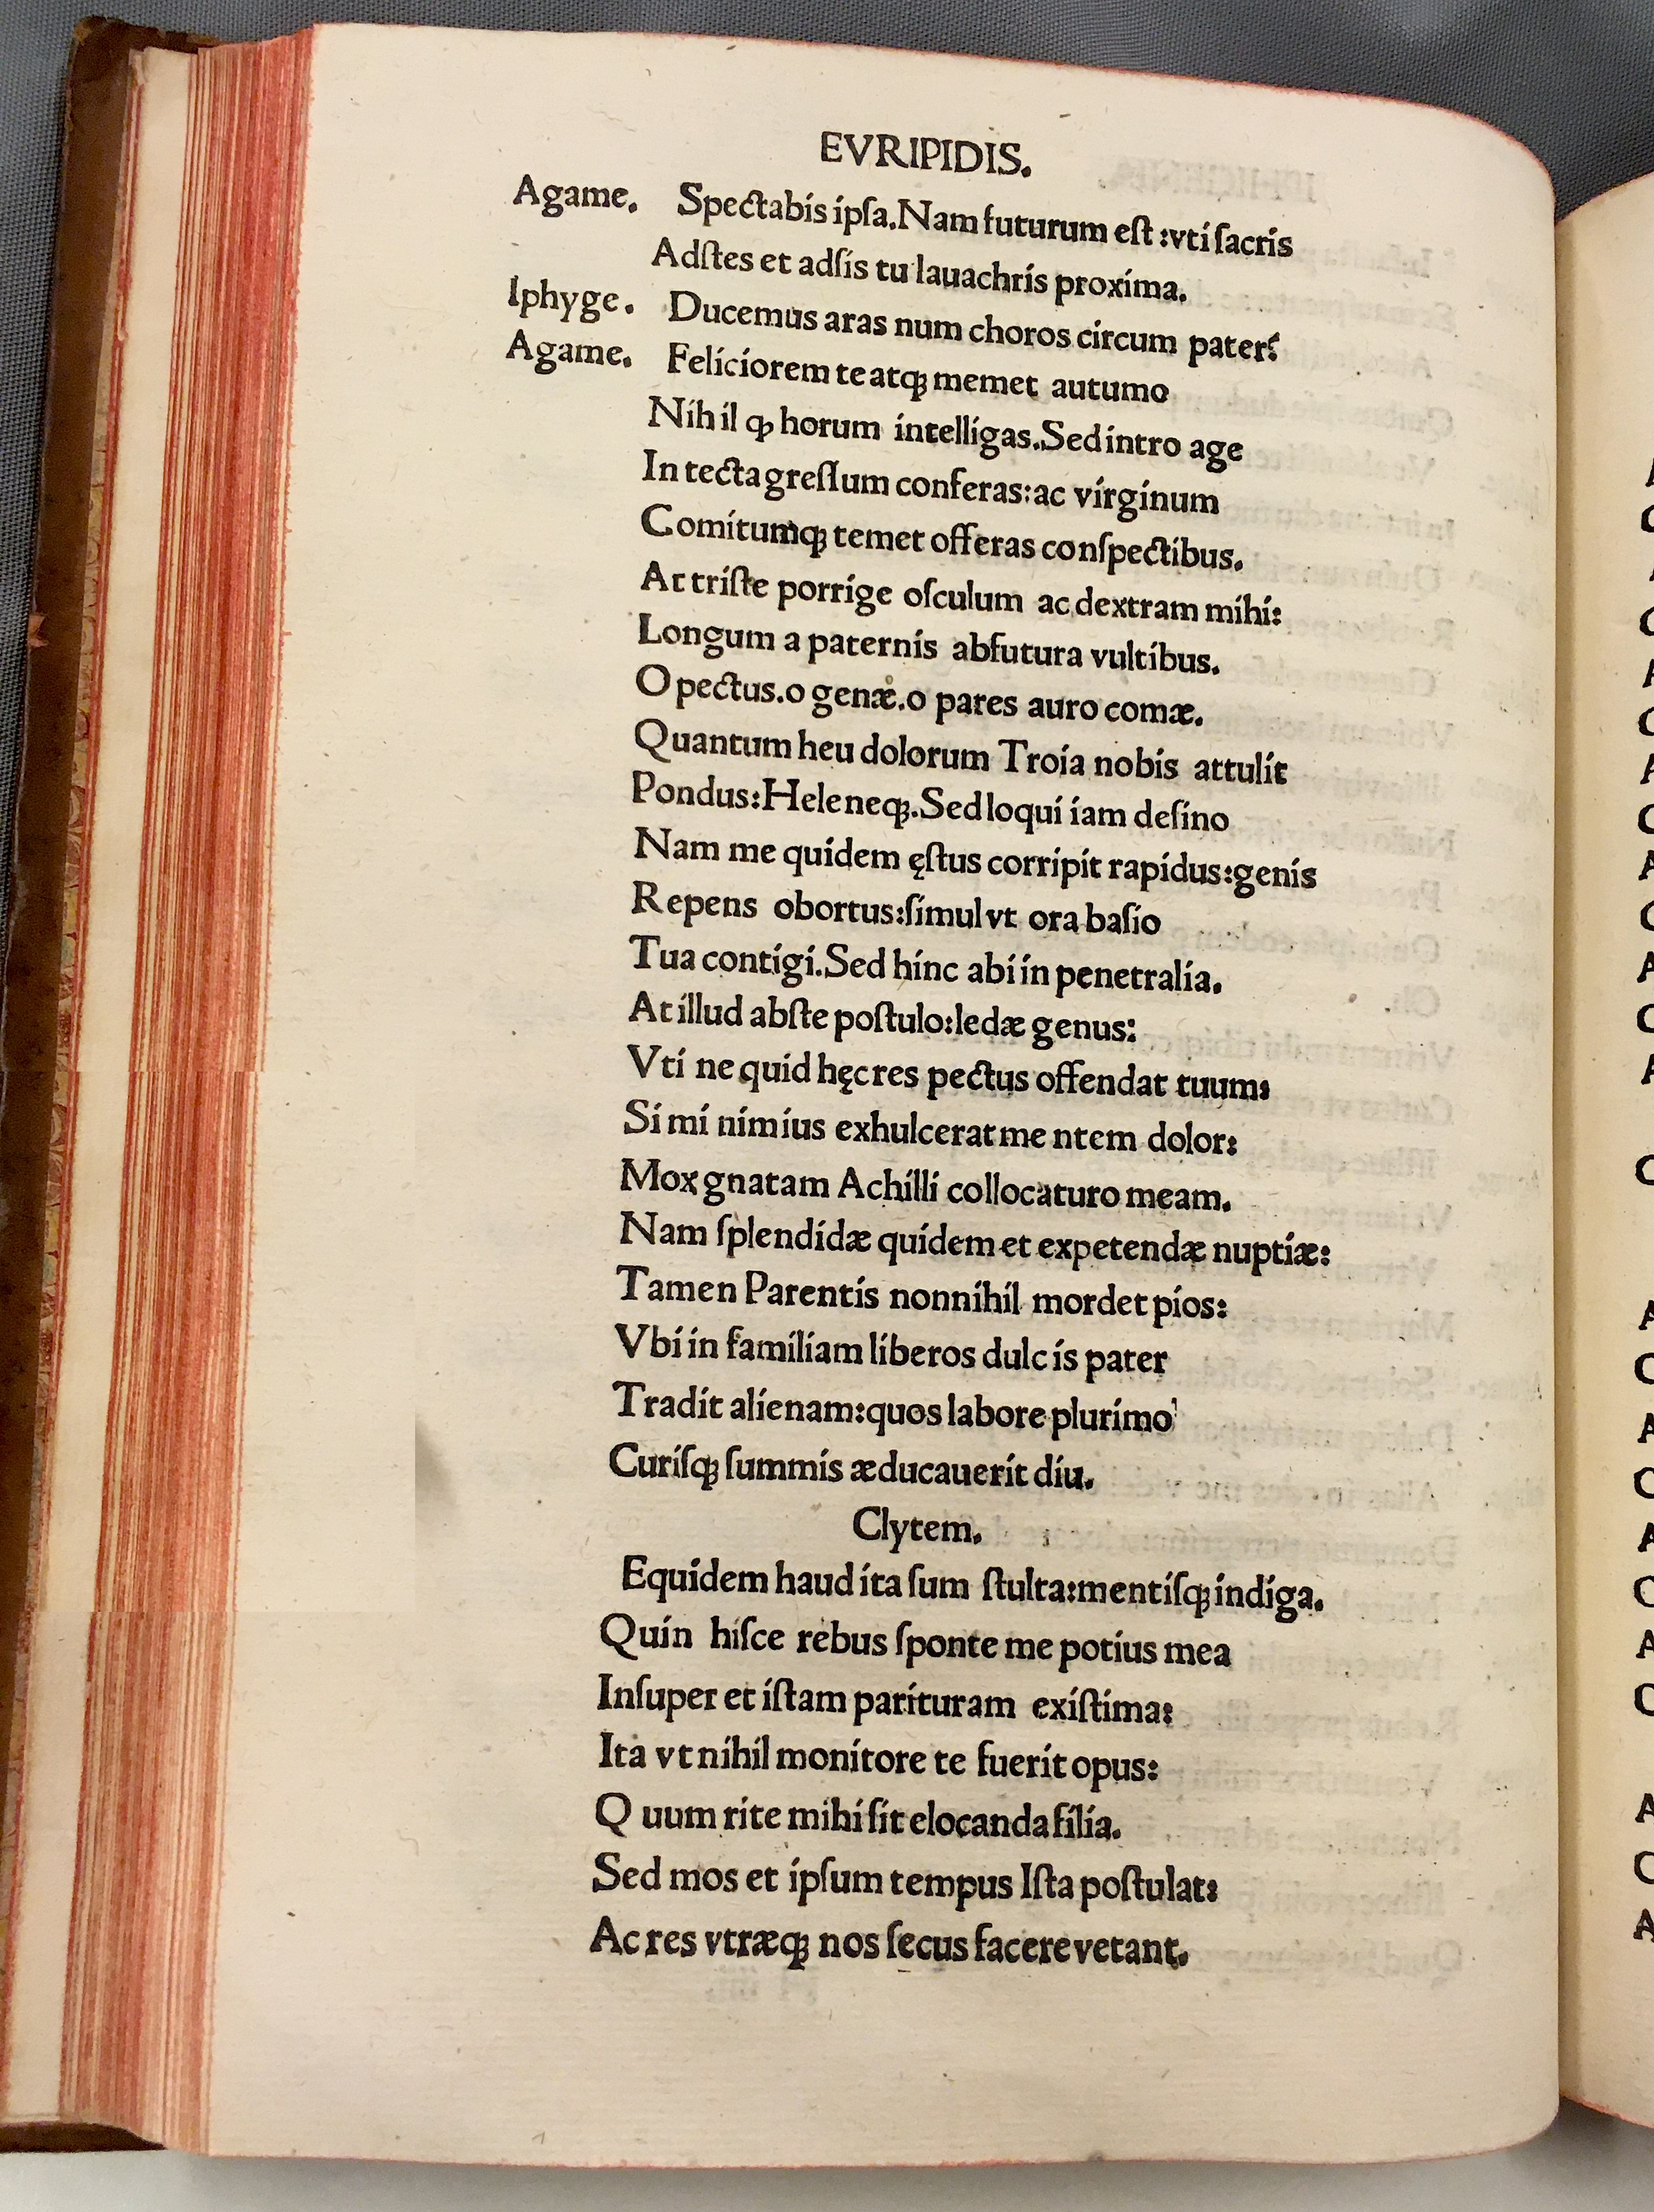 EVRIPIDIS.
Agame. Spectabis ipſa.Nam futurum eſt:vti ſacris
Adſtes et adſis tu lauachris proxima.
Iphyge. Ducemus aras num choros circum pater?
Agame. Feliciorem te atqꝫ memet autumo
Nihil ꝙ horum intelligas.Sed intro age
In tecta greſſum conferas:ac virginum
Comitumqꝫ temet offeras conſpectibus.
At triſte porrige oſculum ac dextram mihi:
Longum a paternis abfutura vultibus.
O pectus.o genæ.o pares auro comæ.
Quantum heu dolorum Troia nobis attulit
Pondus:Heleneqꝫ.Sed loqui iam deſino
Nam me quidem ęſtus corripit rapidus:genis
Repens obortus:ſimul vt ora baſio
Tua contigi.Sed hinc abi in penetralia.
At illud abſte poſtulo:ledæ genus:
Vti ne quid hęc res pectus offendat tuum:
Si mi nimius exhulcerat mentem dolor:
Mox gnatam Achilli collocaturo meam.
Nam ſplendidæ quidem et expetendæ nuptiæ:
Tamen Parentis nonnihil mordet pios:
Vbi in familiam liberos dulcis pater
Tradit alienam:quos labore plurimo
Curiſqꝫ ſummis æducauerit diu.
Clytem.
Equidem haud ita ſum ſtulta:mentiſqꝫ indiga.
Quin hiſce rebus ſponte me potius mea
Inſuper et iſtam parituram exiſtima:
Ita vt nihil monitore te fuerit opus:
Quum rite mihi ſit elocanda filia.
Sed mos et ipſum tempus Iſta poſtulat:
Ac res vtræqꝫ nos ſecus facere vetant.